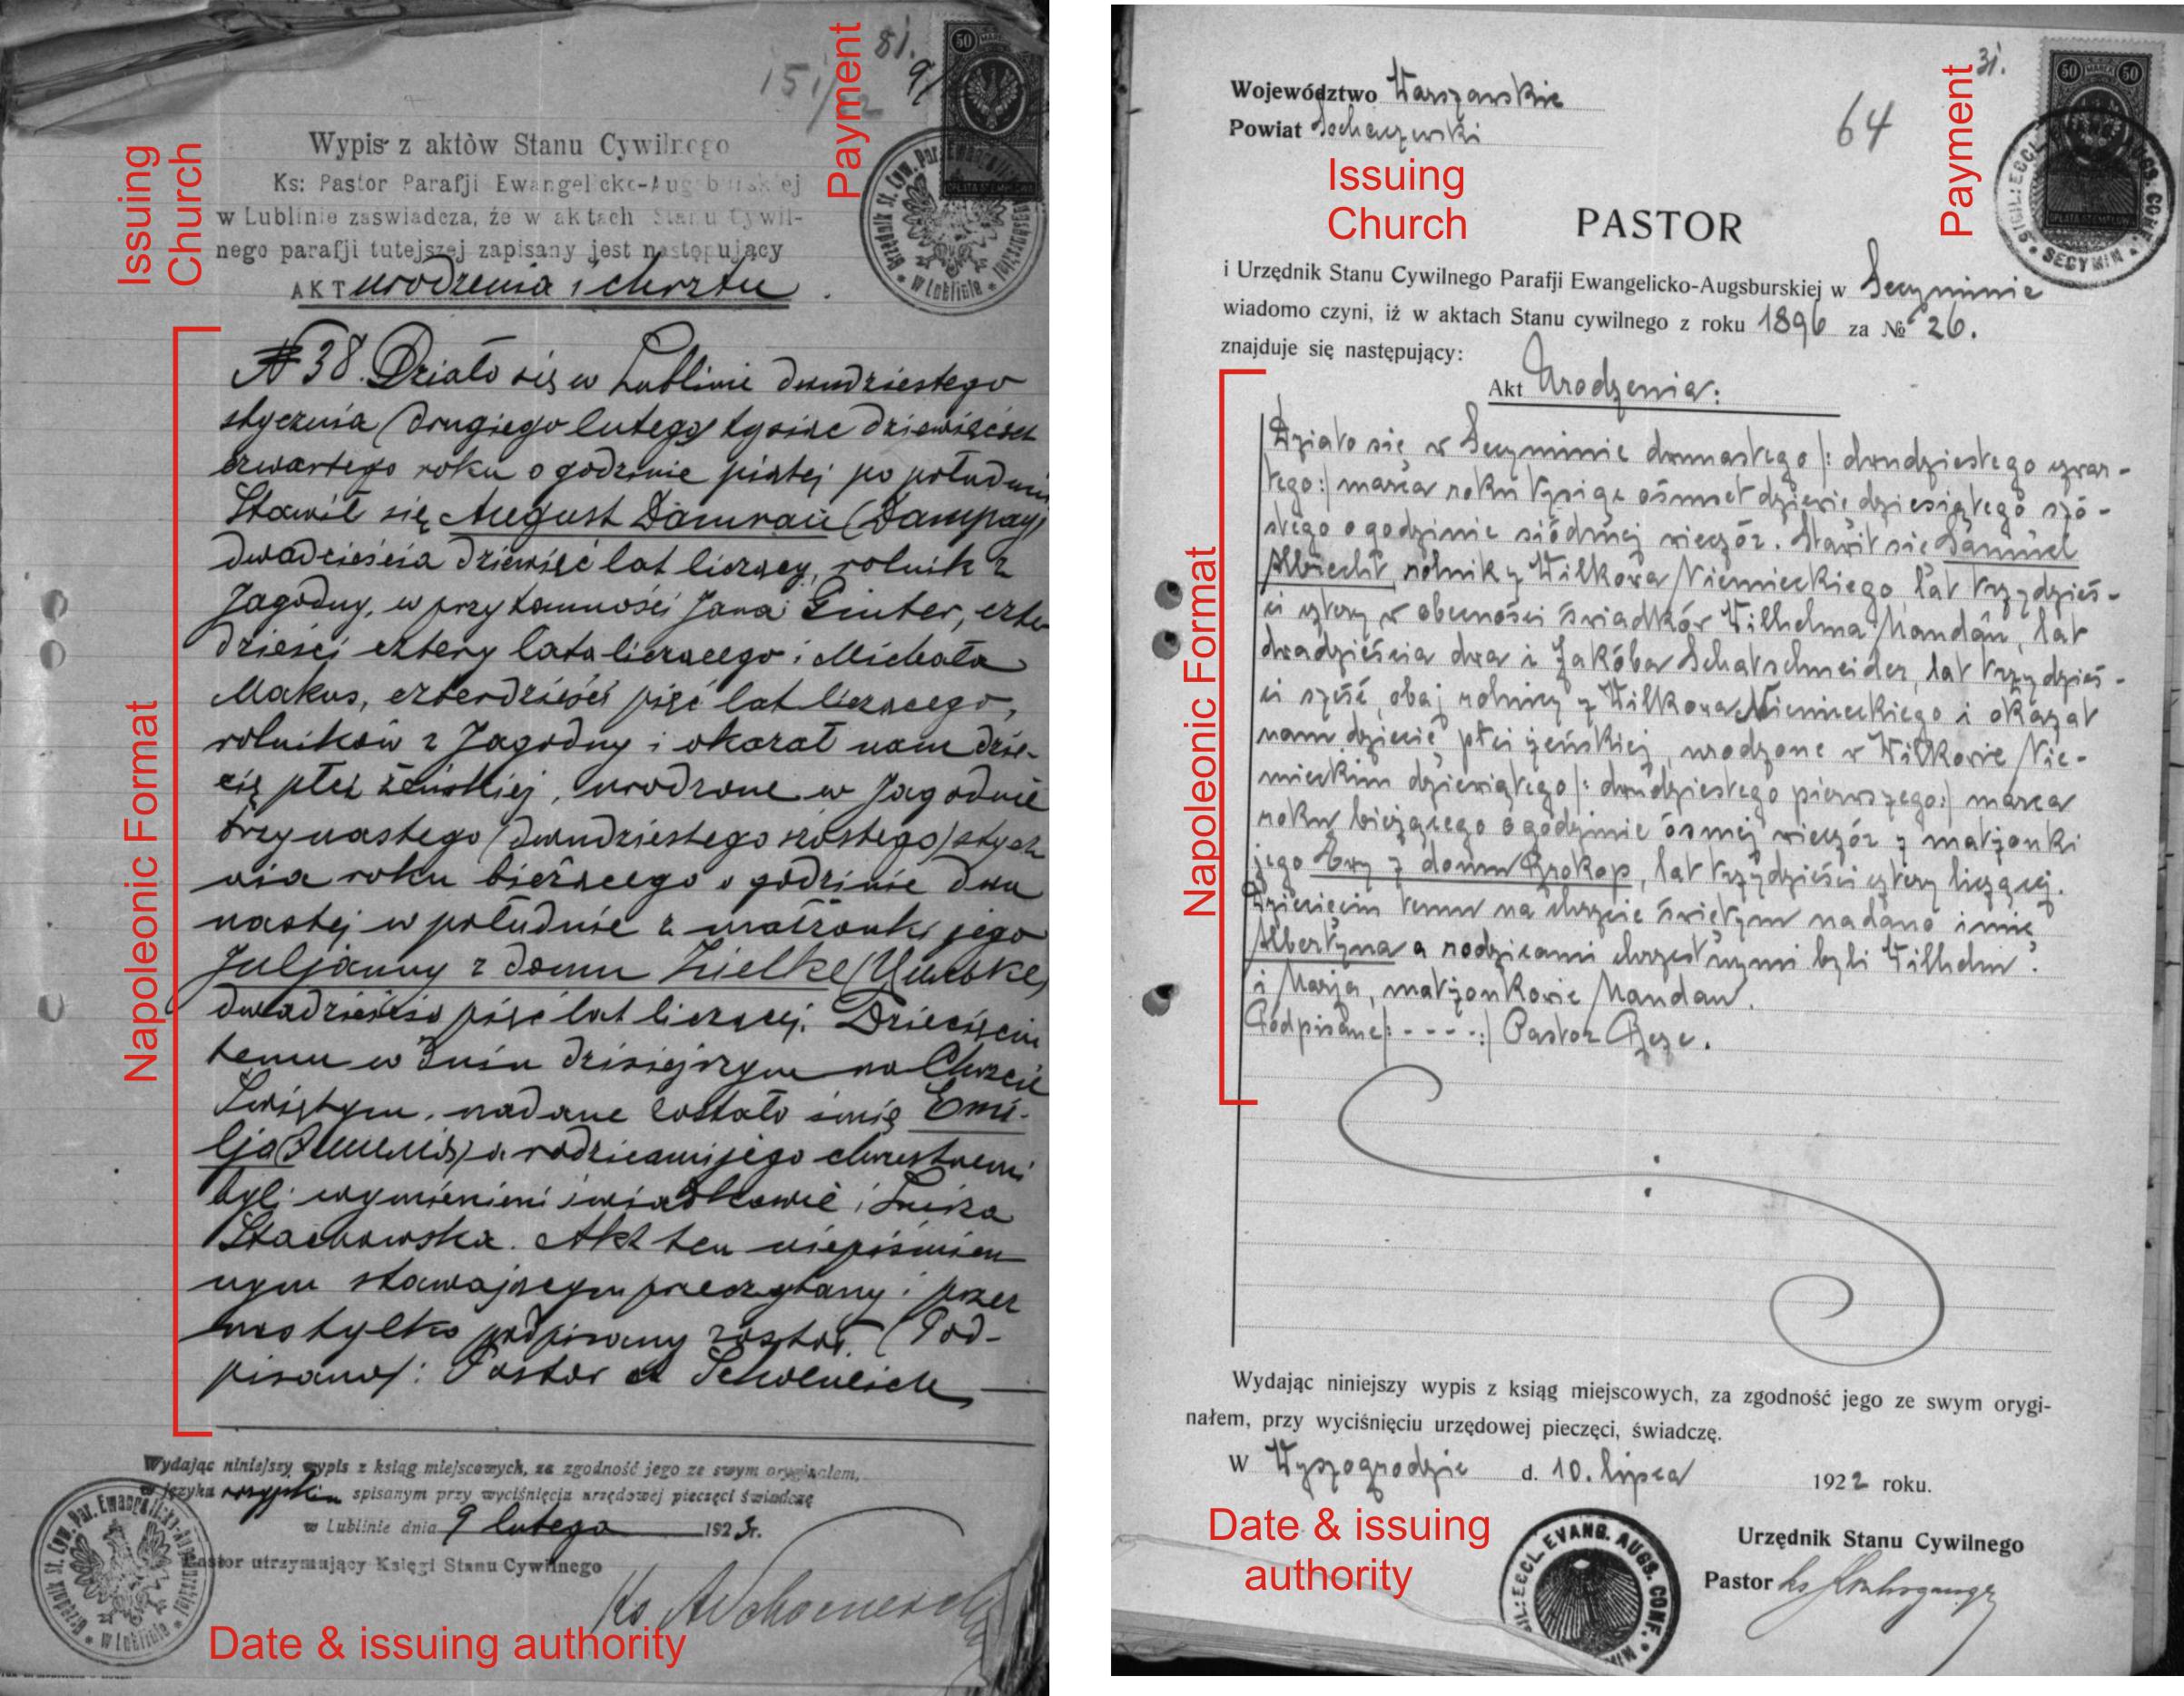 151/22
81.
9/
Payment
50 MAREK
OPŁATA STEMPLOWA
Issuing
Church
Wypis z aktòw Stanu Cywilnego
Ks: Pastor Parafji Ewangelicko-Augsburskiej
w Lublinie zaswiadcza, że w aktach Stanu Cywil-
nego parafji tutejszej zapisany jest następujący
AKT urodzenia i chrztu
Napoleonic Format
N 38. Działo się w Lublinie dwudziestego
stycznia (drugiego lutego) tysiąc dziewięćset
czwartego roku o godzinie piątej po południu
Stawił się August Damrau (Dampay)
dwadzieścia dziewięć lat liczący, rolnik z
Jagodny, w przytomności Jana Ginter, czter
dzieści cztery lata liczącego i Michała
Makus, czterdzieści pięć lat liczącego,
rolników z Jagodny i okazał nam dzie-
cię płci żeńskiej, urodzone w Jagodnie
trzynastego (dwudziestego szóstego) stycz
nia roku bieżącego o godzinie dwu
nastej w południe z małżonki jego
Juljanny z domu Zielke
dwadzieścia pięć lat liczącej. Dziecięciu
temu w dniu dzisiejszym na Chrzcie
Świętym, nadane zostało imię Emi-
lja a rodzicami jego chrzestnemi
byli wymienieni świadkowie i Luiza
Stachowska. Akt ten niepiśmien
nym stawającym przeczytany i przez
nas tylko podpisany został. (Pod-
pisano): Pastor A Schoeneich
Wydając niniejszy wypis z ksiąg miejscowych, za zgodność jego ze swym oryginałem,
w języku rosyjskim spisanym przy wyciśnięcia urzędowej pieczęci świadczę
w Lublinie dnia 9 lutego 1923 r.
Pastor utrzymający Księgi Stanu Cywilnego
Ks A Schoeneich
Date & issuing authority
31.
64
Payment
50 MAREK 50
OPŁATA STEMPLOWA
SECYMIN
Województwo Warszawskie
Powiat Sochaczewski
Issuing
Church
PASTOR
i Urzędnik Stanu Cywilnego Parafji Ewangelicko-Augsburskiej w Secyminie
wiadomo czyni, iż w aktach Stanu cywilnego z roku 1896 za № 26.
znajduje się następujący:
Akt Urodzenia:
Napoleonic Format
Działo się w Secyminie dwunastego /: dwudziestego czwar-
tego :/ marca roku tysiąc ośmset dziewiędziesiątego szó-
stego o godzinie siódmej wieczór. Stawił się Samuel
Albrecht, rolnik z Wilkowa Niemieckiego lat trzydzieś-
ci cztery w obecności świadków Wilhelma Mandau, lat
dwadzieścia dwa i Jakóba Schatschneider, lat trzydzieś-
ci sześć, obaj rolnicy z Wilkowa Niemieckiego i okazał
nam dziecię płci żeńskiej, urodzone w Wilkowie Nie-
mieckim dziewiątego /: dwudziestego pierwszego :/ marca
roku bieżącego o godzinie ósmej wieczór z małżonki
jego Ewy z domu Prokop, lat trzydzieści cztery liczącej.
Dziecięciu temu na chrzcie świętym nadano imię
Albertyna a rodzicami chrzestnymi byli Wilhelm
i Marja, małżonkowie Mandau.
Podpisane /: - - - - :/ Pastor
Wydając niniejszy wypis z ksiąg miejscowych, za zgodność jego ze swym orygi-
nałem, przy wyciśnięciu urzędowej pieczęci, świadczę.
W Wyszogrodzie d. 10. lipca 1922 roku.
Date & issuing
authority
EVANG. AUGS. CONF.
Urzędnik Stanu Cywilnego
Pastor